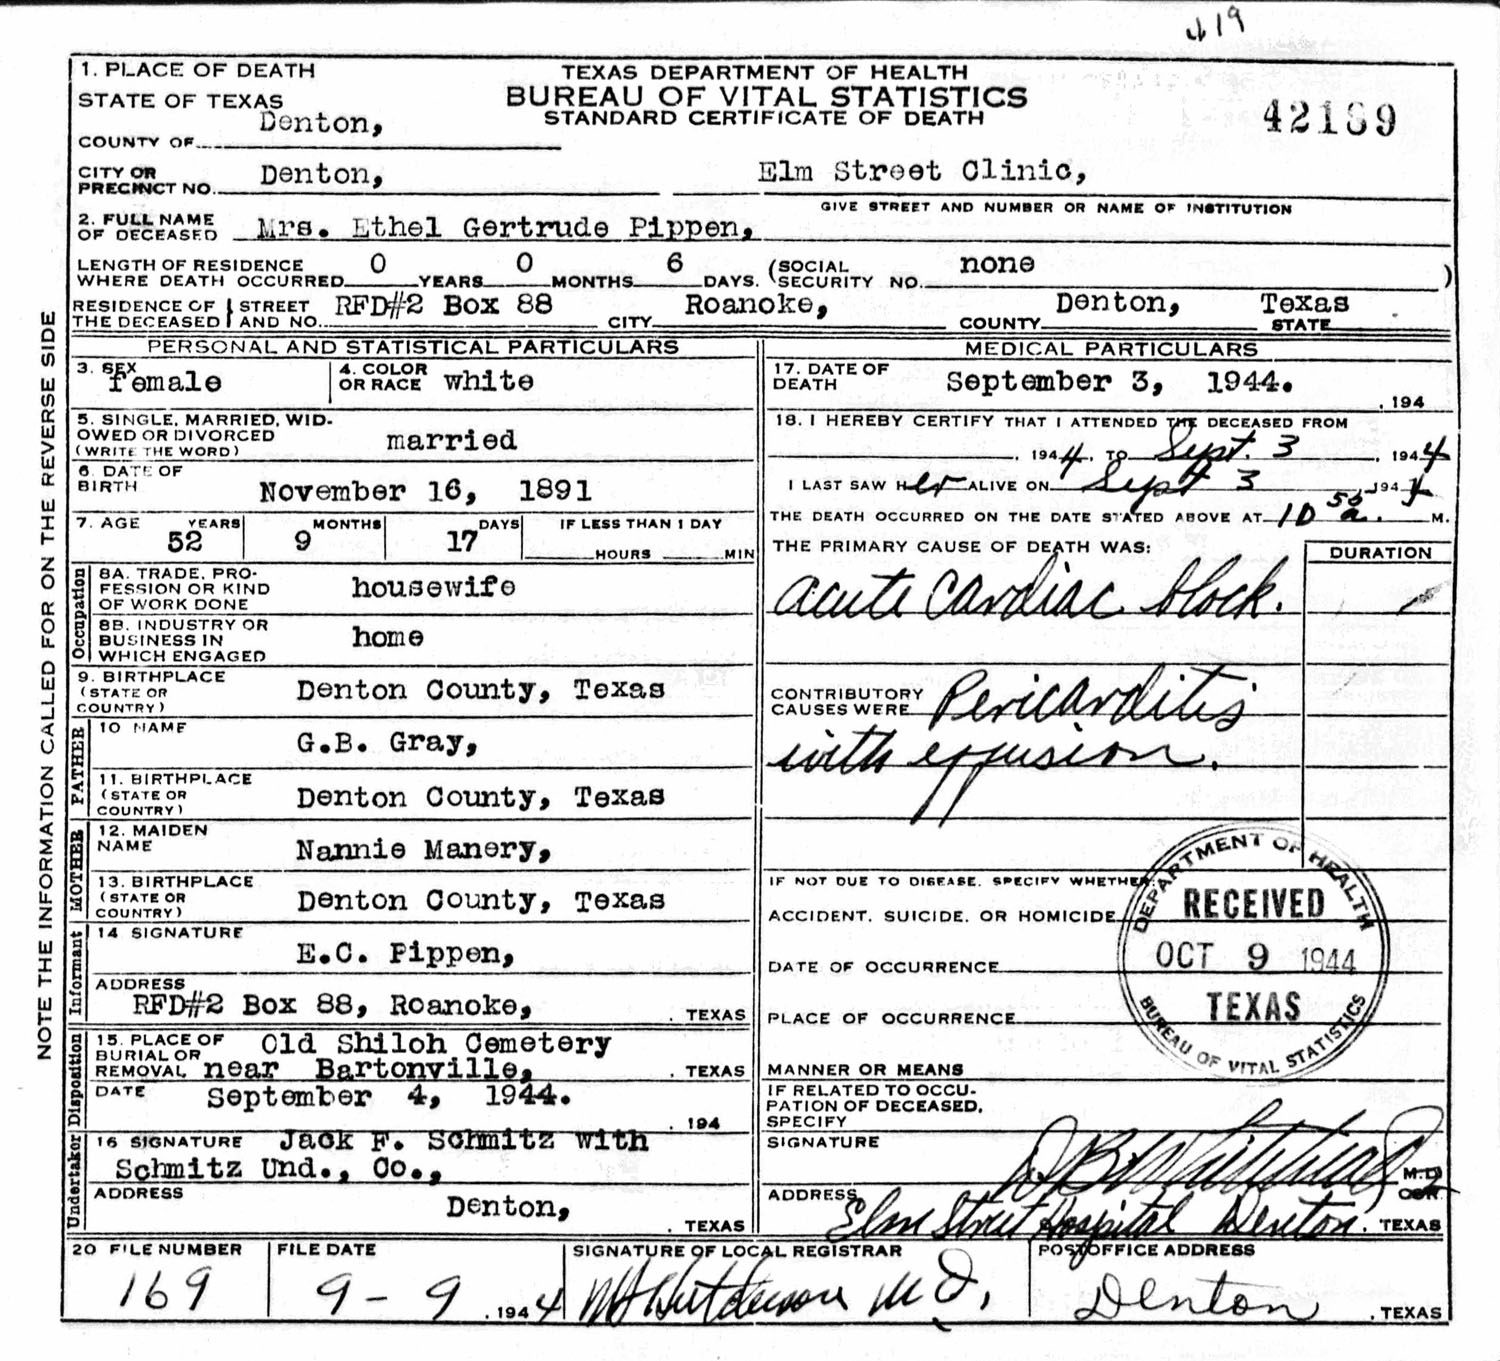 419
1. PLACE OF DEATH
STATE OF TEXAS
COUNTY OF Denton,
TEXAS DEPARTMENT OF HEALTH
BUREAU OF VITAL STATISTICS
STANDARD CERTIFICATE OF DEATH
42189
CITY OR PRECINCT NO. Denton, Elm Street Clinic,
GIVE STREET AND NUMBER OR NAME OF INSTITUTION
2. FULL NAME OF DECEASED Mrs. Ethel Gertrude Pippen,
LENGTH OF RESIDENCE WHERE DEATH OCCURRED 0 YEARS 0 MONTHS 6 DAYS. (SOCIAL SECURITY NO. none )
RESIDENCE OF THE DECEASED STREET AND NO. RFD#2 Box 88 CITY Roanoke, COUNTY Denton, STATE Texas
PERSONAL AND STATISTICAL PARTICULARS
3. SEX female
4. COLOR OR RACE white
5. SINGLE, MARRIED, WIDOWED OR DIVORCED (WRITE THE WORD) married
6. DATE OF BIRTH November 16, 1891
7. AGE YEARS 52 MONTHS 9 DAYS 17 IF LESS THAN 1 DAY HOURS MIN
Occupation
8A. TRADE, PROFESSION OR KIND OF WORK DONE housewife
8B. INDUSTRY OR BUSINESS IN WHICH ENGAGED home
9. BIRTHPLACE (STATE OR COUNTRY) Denton County, Texas
FATHER
10 NAME G.B. Gray,
11. BIRTHPLACE (STATE OR COUNTRY) Denton County, Texas
MOTHER
12. MAIDEN NAME Nannie Manery,
13. BIRTHPLACE (STATE OR COUNTRY) Denton County, Texas
Informant
14 SIGNATURE E.C. Pippen,
ADDRESS RFD#2 Box 88, Roanoke, , TEXAS
Disposition
15. PLACE OF BURIAL OR REMOVAL Old Shiloh Cemetery
near Bartonville, , TEXAS
DATE September 4, 1944. , 194
Undertaker
16 SIGNATURE Jack F. Schmitz with
Schmitz Und., Co.,
ADDRESS Denton, , TEXAS
MEDICAL PARTICULARS
17. DATE OF DEATH September 3, 1944. , 194
18. I HEREBY CERTIFY THAT I ATTENDED THE DECEASED FROM
, 1944, TO Sept. 3, 1944
I LAST SAW Her ALIVE ON Sept 3 1944
THE DEATH OCCURRED ON THE DATE STATED ABOVE AT 10 a. M.
THE PRIMARY CAUSE OF DEATH WAS: DURATION
acute cardiac block.
CONTRIBUTORY CAUSES WERE Pericarditis
with effusion.
IF NOT DUE TO DISEASE, SPECIFY WHETHER
ACCIDENT, SUICIDE, OR HOMICIDE
DATE OF OCCURRENCE
PLACE OF OCCURRENCE
MANNER OR MEANS
DEPARTMENT OF HEALTH
RECEIVED
OCT 9 1944
TEXAS
BUREAU OF VITAL STATISTICS
IF RELATED TO OCCUPATION OF DECEASED, SPECIFY
SIGNATURE M.D. COR.
ADDRESS Elm Street Hospital Denton, TEXAS
20 FILE NUMBER 169
FILE DATE 9-9, 1944
SIGNATURE OF LOCAL REGISTRAR Hutcheson M D,
POSTOFFICE ADDRESS Denton, TEXAS
NOTE THE INFORMATION CALLED FOR ON THE REVERSE SIDE